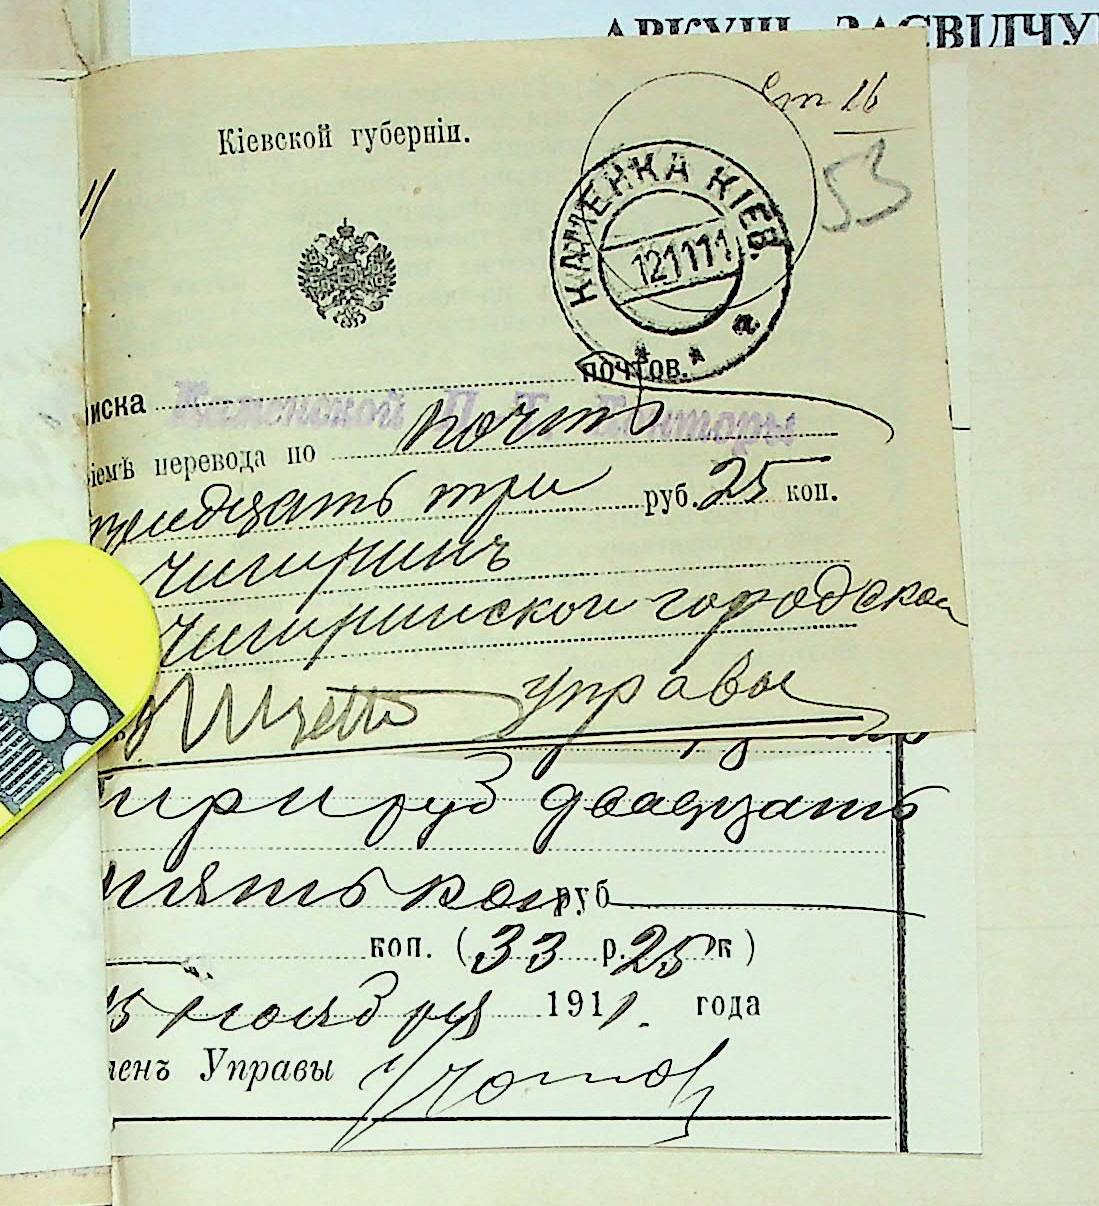 АРКУШ ЗАСВІДЧУ
Кіевской губерніи.
Ст 16
53
КАМЕНКА КІЕВ.
121111
а
почтов.
иска Каменской П. Т. Конторы
ріемѣ перевода по почтѣ
тридцать три руб. 25 коп.
Чигиринъ
Чигиринской городской
управы
три руб двадцать
пять коп руб
коп. ( 33 р. 25 к )
15 ноября 1911. года
ленъ Управы